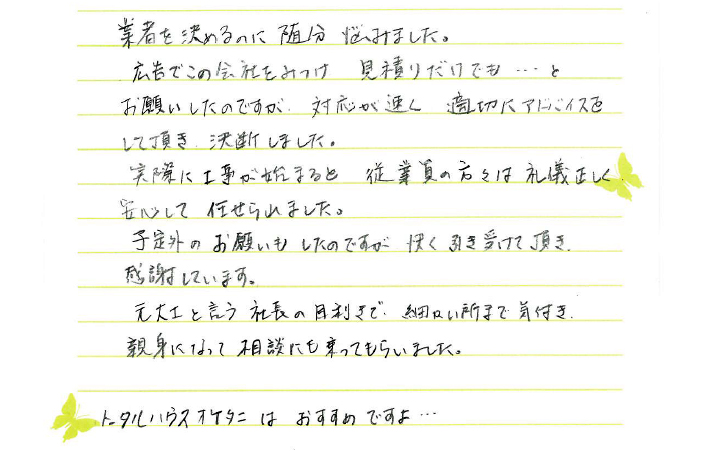 業者を決めるのに 随分 悩みました。
広告でこの会社をみつけ 見積りだけでも…と
お願いしたのですが、対応が速く 適切にアドバイスを
して頂き、決断しました。
実際に工事が始まると 従業員の方々は 礼儀正しく
安心して 任せられました。
予定外の お願いも したのですが 快く 引き受けて 頂き、
感謝しています。
元大工と言う 社長の目利きで、細かい所まで 気付き、
親身になって 相談にも乗ってもらいました。
トータルハウスオケタニ は おすすめ ですよ…